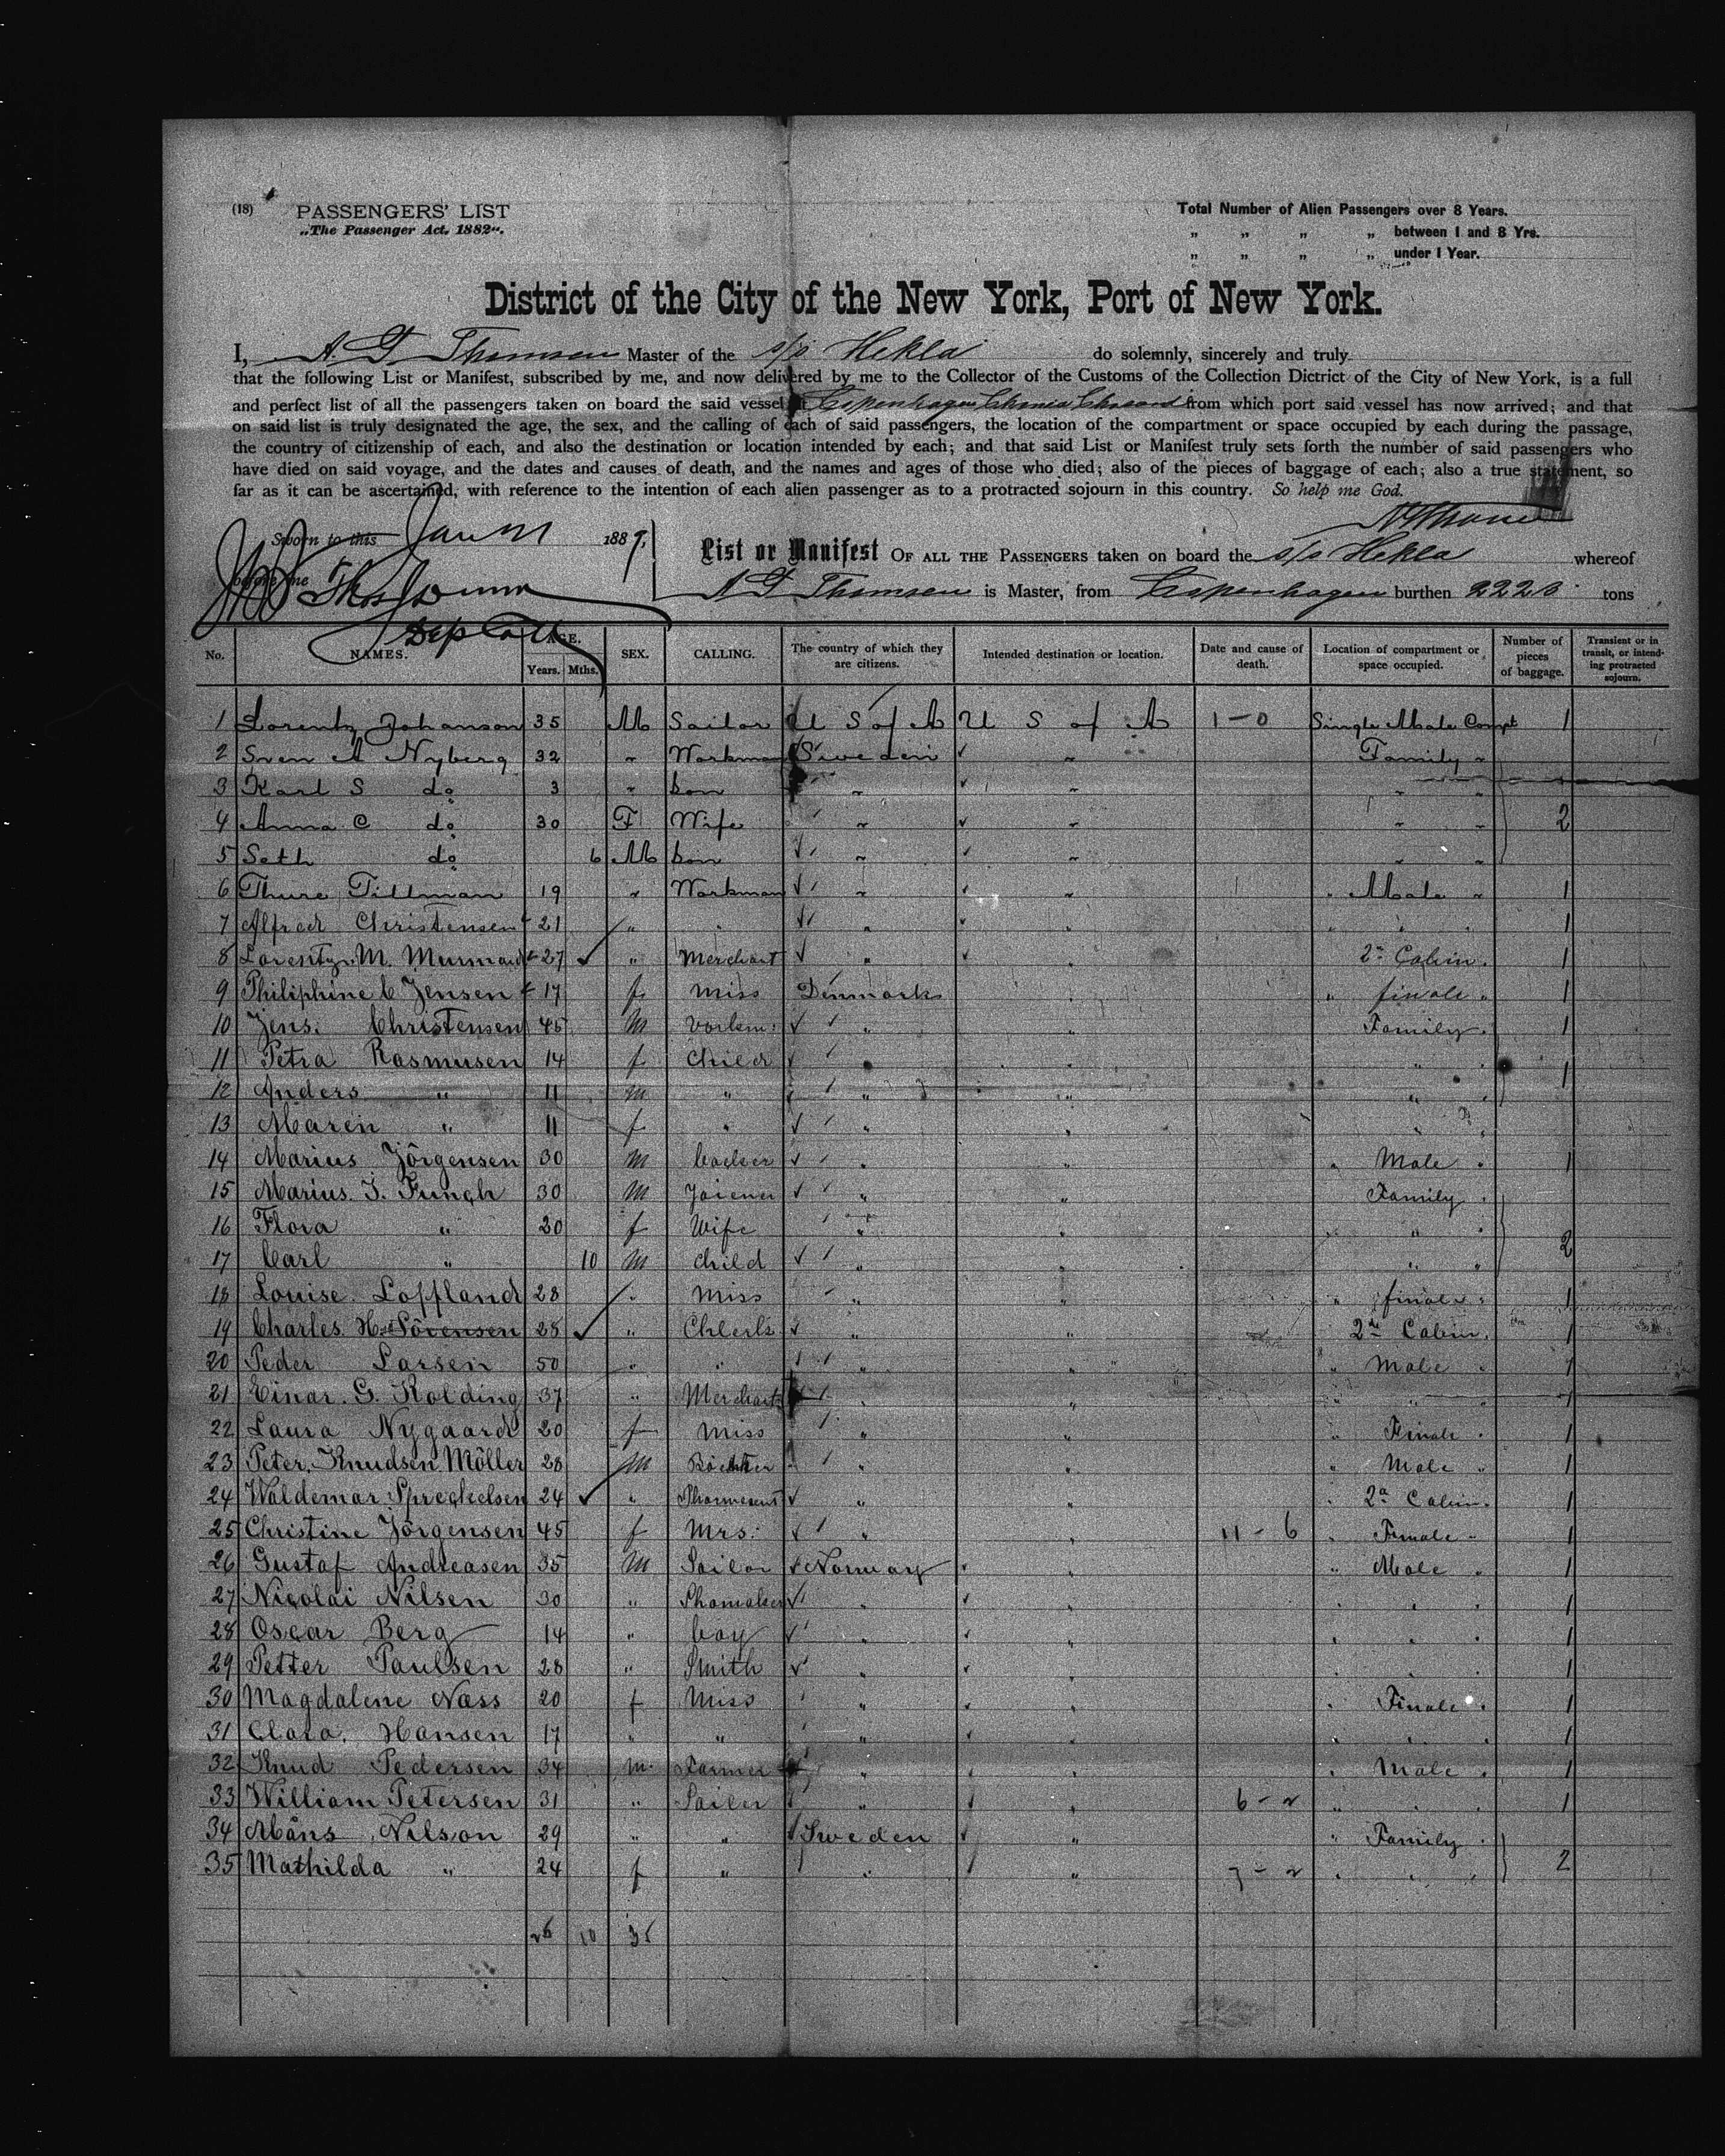 (18) PASSENGERS' LIST
„The Passenger Act, 1882“.
Total Number of Alien Passengers over 8 Years.
„ „ „ „ between 1 and 8 Yrs.
„ „ „ „ under 1 Year.
District of the City of the New York, Port of New York.
I, A. D Thomsen Master of the s/s Hekla do solemnly, sincerely and truly
that the following List or Manifest, subscribed by me, and now delivered by me to the Collector of the Customs of the Collection Dictrict of the City of New York, is a full
and perfect list of all the passengers taken on board the said vessel Copenhagen from which port said vessel has now arrived; and that
on said list is truly designated the age, the sex, and the calling of each of said passengers, the location of the compartment or space occupied by each during the passage,
the country of citizenship of each, and also the destination or location intended by each; and that said List or Manifest truly sets forth the number of said passengers who
have died on said voyage, and the dates and causes of death, and the names and ages of those who died; also of the pieces of baggage of each; also a true statement, so
far as it can be ascertained, with reference to the intention of each alien passenger as to a protracted sojourn in this country. So help me God.
Sworn to this Jan 1889,
before me
List or Manifest OF ALL THE PASSENGERS taken on board the s/s Hekla whereof
A D Thomsen is Master, from Copenhagen burthen tons
No. NAMES. AGE. Years. Mths. SEX. CALLING. The country of which they are citizens. Intended destination or location. Date and cause of death. Location of compartment or space occupied. Number of pieces of baggage. Transient or in transit, or intending protracted sojourn.
1 Lorentz Johanson 35 M Sailor U S of A U S of A 1-0 Single Male Compt 1
2 Sven A Nyberg 32 " Workman Sweden " Family "
3 Karl S do 3 " Son " " " "
4 Anna C do 30 F Wife " " " " 2
5 Seth do 6 M Son " " " "
6 Thure Tillman 19 " Workman " " " Male " 1
7 Alfred Christensen 21 " " " " " " " 1
8 Lorentz M. 27 " Merchant " " 2" Cabin. 1
9 Philiphine C Jensen 17 f Miss Denmark " " fimale " 1
10 Jens. Christensen 45 M Workm. " " Family " 1
11 Petra Rasmusen 14 f Child " " " " 1
12 Anders " 11 M " " " " "
13 Maren " 11 f " " " " "
14 Marius Jörgensen 30 M " " " Male " 1
15 Marius. J. Fungh 30 M Joiener " " Family "
16 Flora " 20 f Wife " " " " 2
17 Carl " 10 M Child " " " "
18 Louise. Loffland 28 " Miss " " " fimale " 1
19 Charles. H. Sörensen 28 " " " 2" Cabin. 1
20 Peder Larsen 50 " " " " " Male " 1
21 Einar. G. Kolding 37 " Merchant " " " " " 1
22 Laura Nygaard 20 f Miss " " " Fimale " 1
23 Peter. Knudsen Möller 28 M " " " Male " 1
24 Waldemar Spreckelsen 24 " " " " 2" Cabin. 1
25 Christine Jörgensen 45 f Mrs. " " 11-6 " Fimale " 1
26 Gustaf Andreasen 35 M Sailor Norway " " Male " 1
27 Nicolai Nilsen 30 " " " " " " 1
28 Oscar Berg 14 " boy " " " " " 1
29 Petter Paulsen 28 " Smith " " " " " 1
30 Magdalene Nass 20 f Miss " " " Fimale " 1
31 Clara. Hansen 17 " " " " " " " 1
32 Knud Pedersen 34 M. Farmer " " " Male " 1
33 William Petersen 31 " Sailor " " 6-2 " " " 1
34 Måns Nilson 29 " " Sweden " " Family "
35 Mathilda " 24 f " " " 7-2 " " " 2